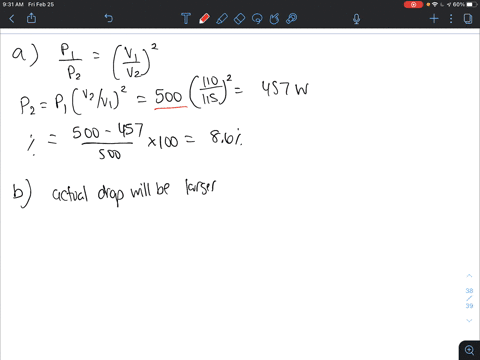 9:31 AM Fri Feb 25
60%
a) P₁/P₂ = (V₁/V₂)²
P₂ = P₁ (V₂/V₁)² = 500 (110/115)² = 457 W
% = (500 - 457)/500 × 100 = 8.6%
b) actual drop will be larger
38 / 39